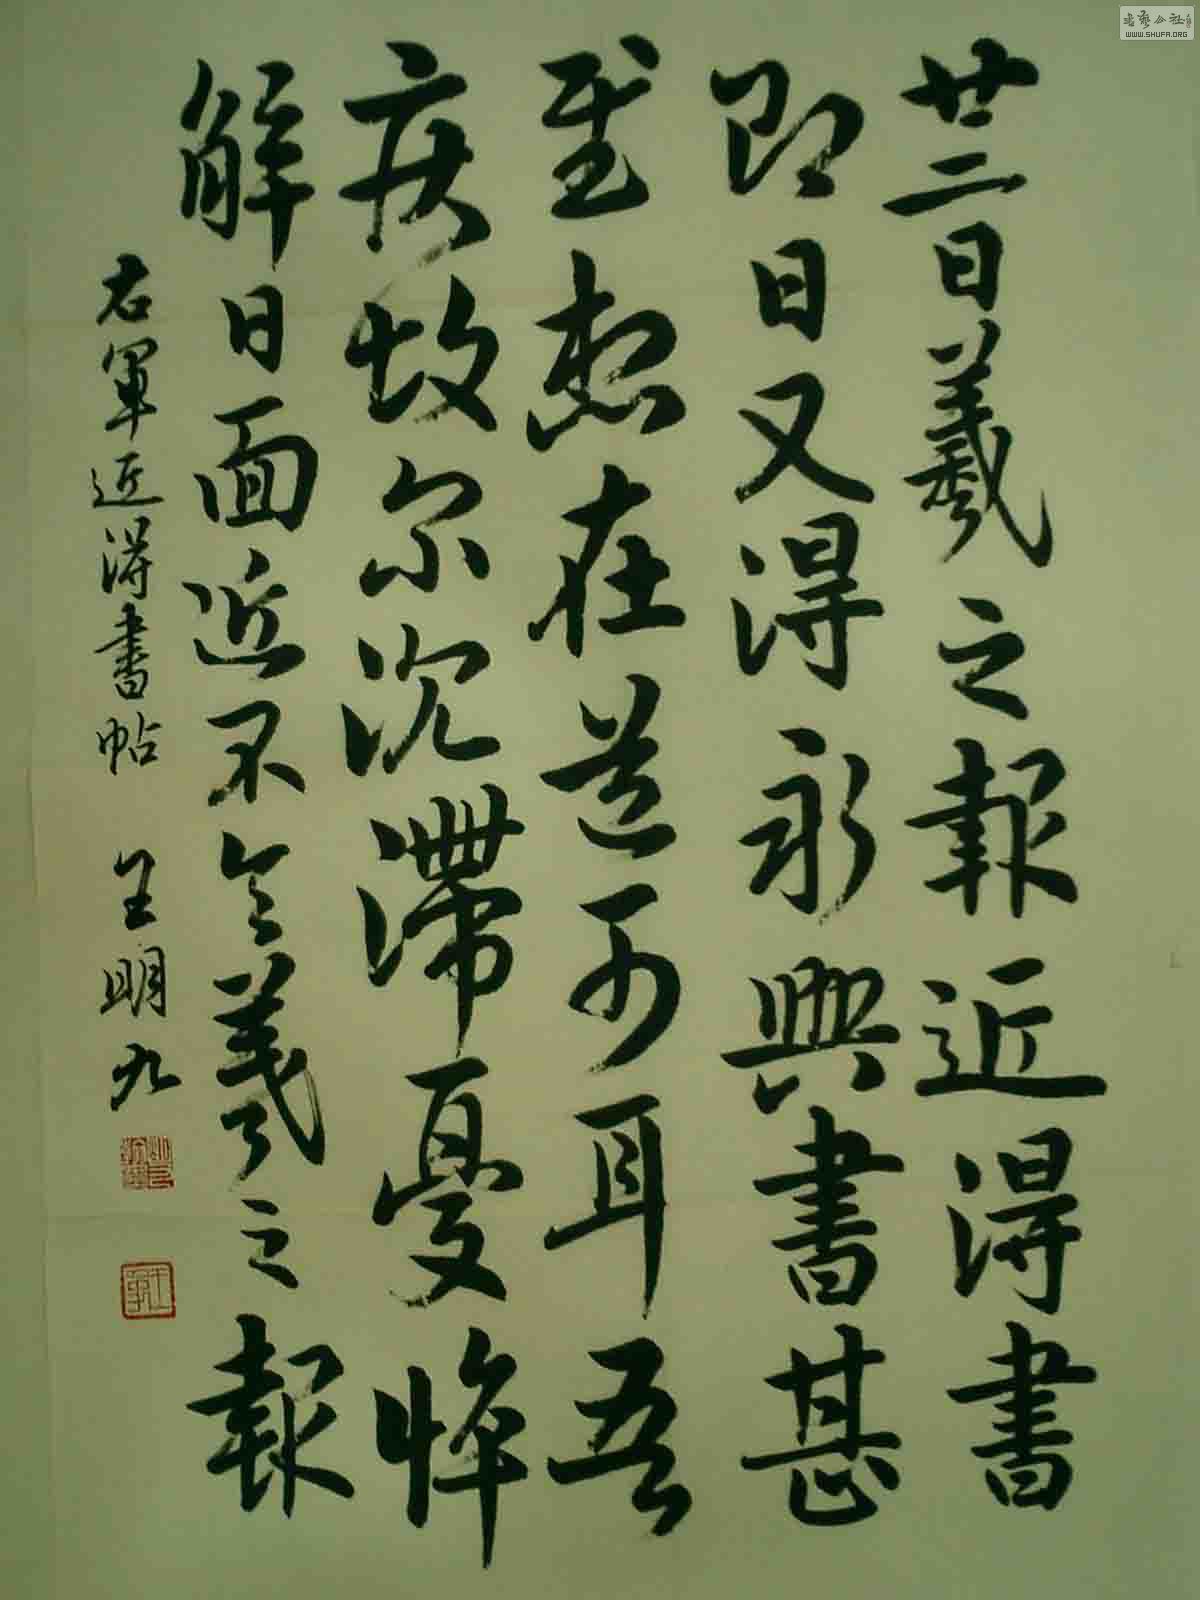 廿二日羲之報近得書
即日又得永興書甚
慰想在道可耳吾
疾故尔沉滯憂悴
解日面近不具羲之報
右軍近得書帖 王明九
书艺公社
WWW.SHUFA.ORG